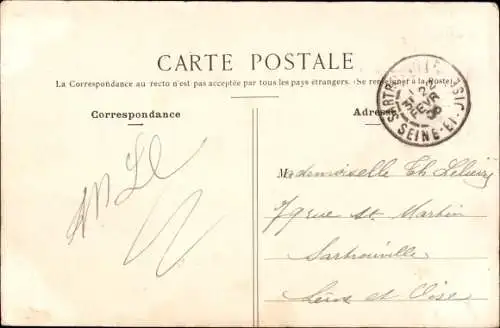 CARTE POSTALE
La Correspondance au recto n'est pas acceptée par tous les pays étrangers. (Se renseigner à la Poste)
Correspondance
Adresse
SEINE-ET-OISE
FEVR
Mademoiselle Th
79 rue St Martin
Sartrouville
Seine et Oise